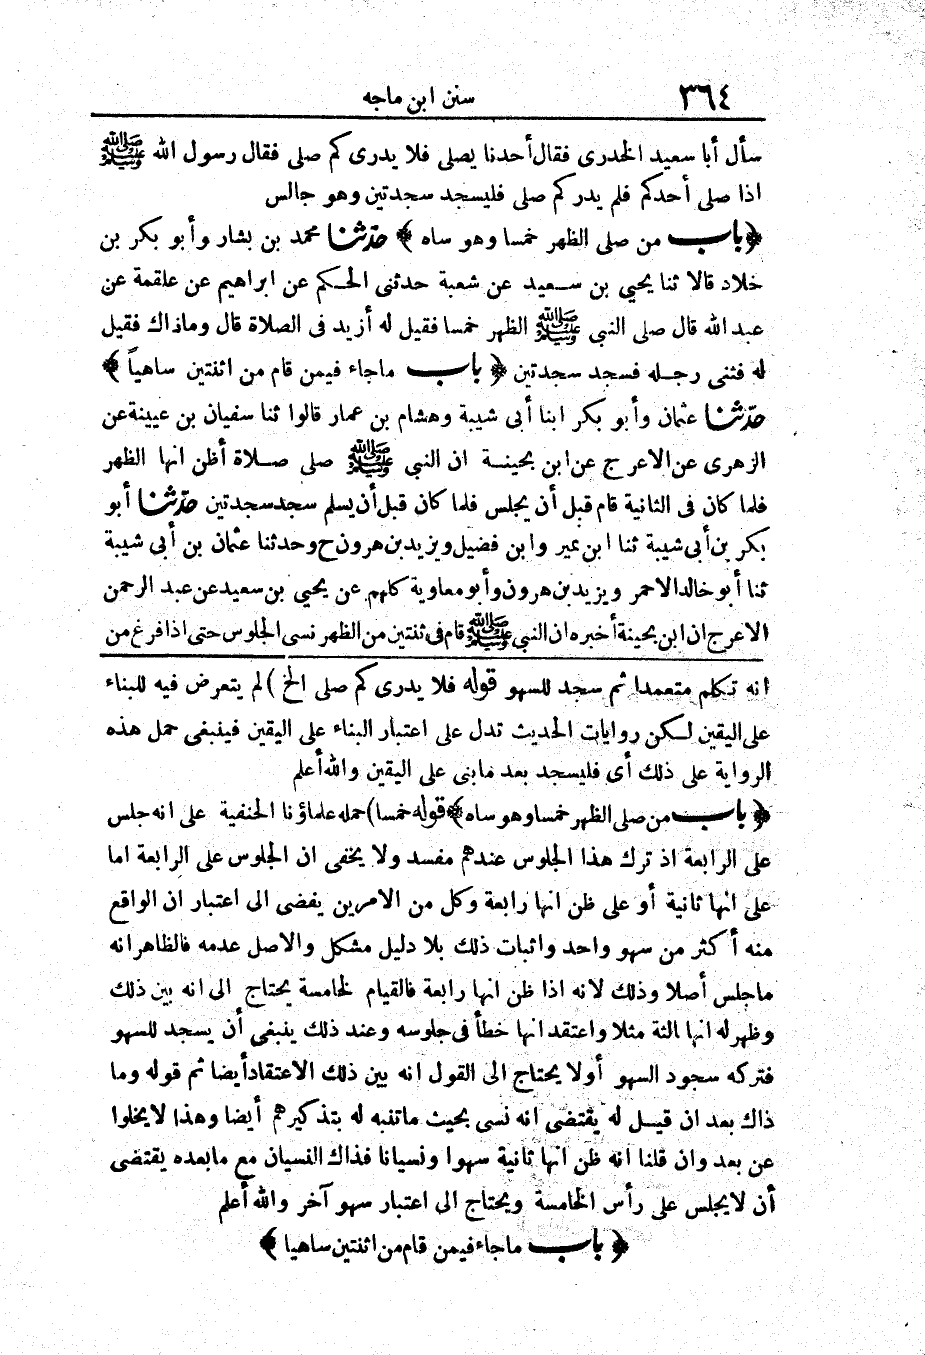 ٣٦٤ سنن ابن ماجه
سأل أبا سعيد الخدرى فقال أحدنا يصلى فلا يدرى كم صلى فقال رسول الله ﷺ
اذا صلى أحدكم فلم يدر كم صلى فليسجد سجدتين وهو جالس
﴿ باب من صلى الظهر خمسا وهو ساه ﴾ حدّثنا محمد بن بشار وأبو بكر بن
خلاد قالا ثنا يحيى بن سعيد عن شعبة حدثنى الحكم عن ابراهيم عن علقمة عن
عبد الله قال صلى النبي ﷺ الظهر خمسا فقيل له أزيد فى الصلاة قال وماذاك فقيل
له فثنى رجله فسجد سجدتين ﴿ باب ماجاء فيمن قام من اثنتين ساهياً ﴾
حدّثنا عثمان وأبو بكر ابنا أبى شيبة وهشام بن عمار قالوا ثنا سفيان بن عيينة عن
الزهرى عن الاعرج عن ابن بحينة ان النبي ﷺ صلى صلاة أظن انها الظهر
فلما كان فى الثانية قام قبل أن يجلس فلما كان قبل أن يسلم سجد سجدتين حدّثنا أبو
بكر بن أبى شيبة ثنا ابن نمير وابن فضيل ويزيد بن هرون ح وحدثنا عثمان بن أبى شيبة
ثنا أبو خالد الاحمر ويزيد بن هرون وأبو معاوية كلهم عن يحيى بن سعيد عن عبد الرحمن
الاعرج ان ابن بحينة أخبره ان النبي ﷺ قام فى ثنتين من الظهر نسى الجلوس حتى اذا فرغ من
انه تكلم متعمدا ثم سجد للسهو قوله فلا يدرى كم صلى الخ ) لم يتعرض فيه للبناء
على اليقين لكن روايات الحديث تدل على اعتبار البناء على اليقين فينبغى حمل هذه
الرواية على ذلك أى فليسجد بعد ما بنى على اليقين والله أعلم
﴿ باب من صلى الظهر خمسا وهو ساه ﴾ قوله خمسا ) حمله علماؤنا الحنفية على انه جلس
على الرابعة اذ ترك هذا الجلوس عندهم مفسد ولا يخفى ان الجلوس على الرابعة اما
على انها ثانية أو على ظن انها رابعة وكل من الامرين يفضى الى اعتبار ان الواقع
منه أكثر من سهو واحد واثبات ذلك بلا دليل مشكل والاصل عدمه فالظاهر انه
ماجلس أصلا وذلك لانه اذا ظن انها رابعة فالقيام لخامسة يحتاج الى انه بين ذلك
وظهر له انها الثة مثلا واعتقد انها خطأ فى جلوسه وعند ذلك ينبغى أن يسجد للسهو
فتركه سجود السهو أولا يحتاج الى القول انه بين ذلك الاعتقاد أيضا ثم قوله وما
ذاك بعد ان قيل له يقتضى انه نسى بحيث ماتنبه له بتذكيرهم أيضا وهذا لا يخلوا
عن بعد وان قلنا انه ظن انها ثانية سهوا ونسيانا فذاك النسيان مع مابعده يقتضى
أن لا يجلس على رأس الخامسة ويحتاج الى اعتبار سهو آخر والله أعلم
﴿ باب ماجاء فيمن قام من اثنتين ساهيا ﴾